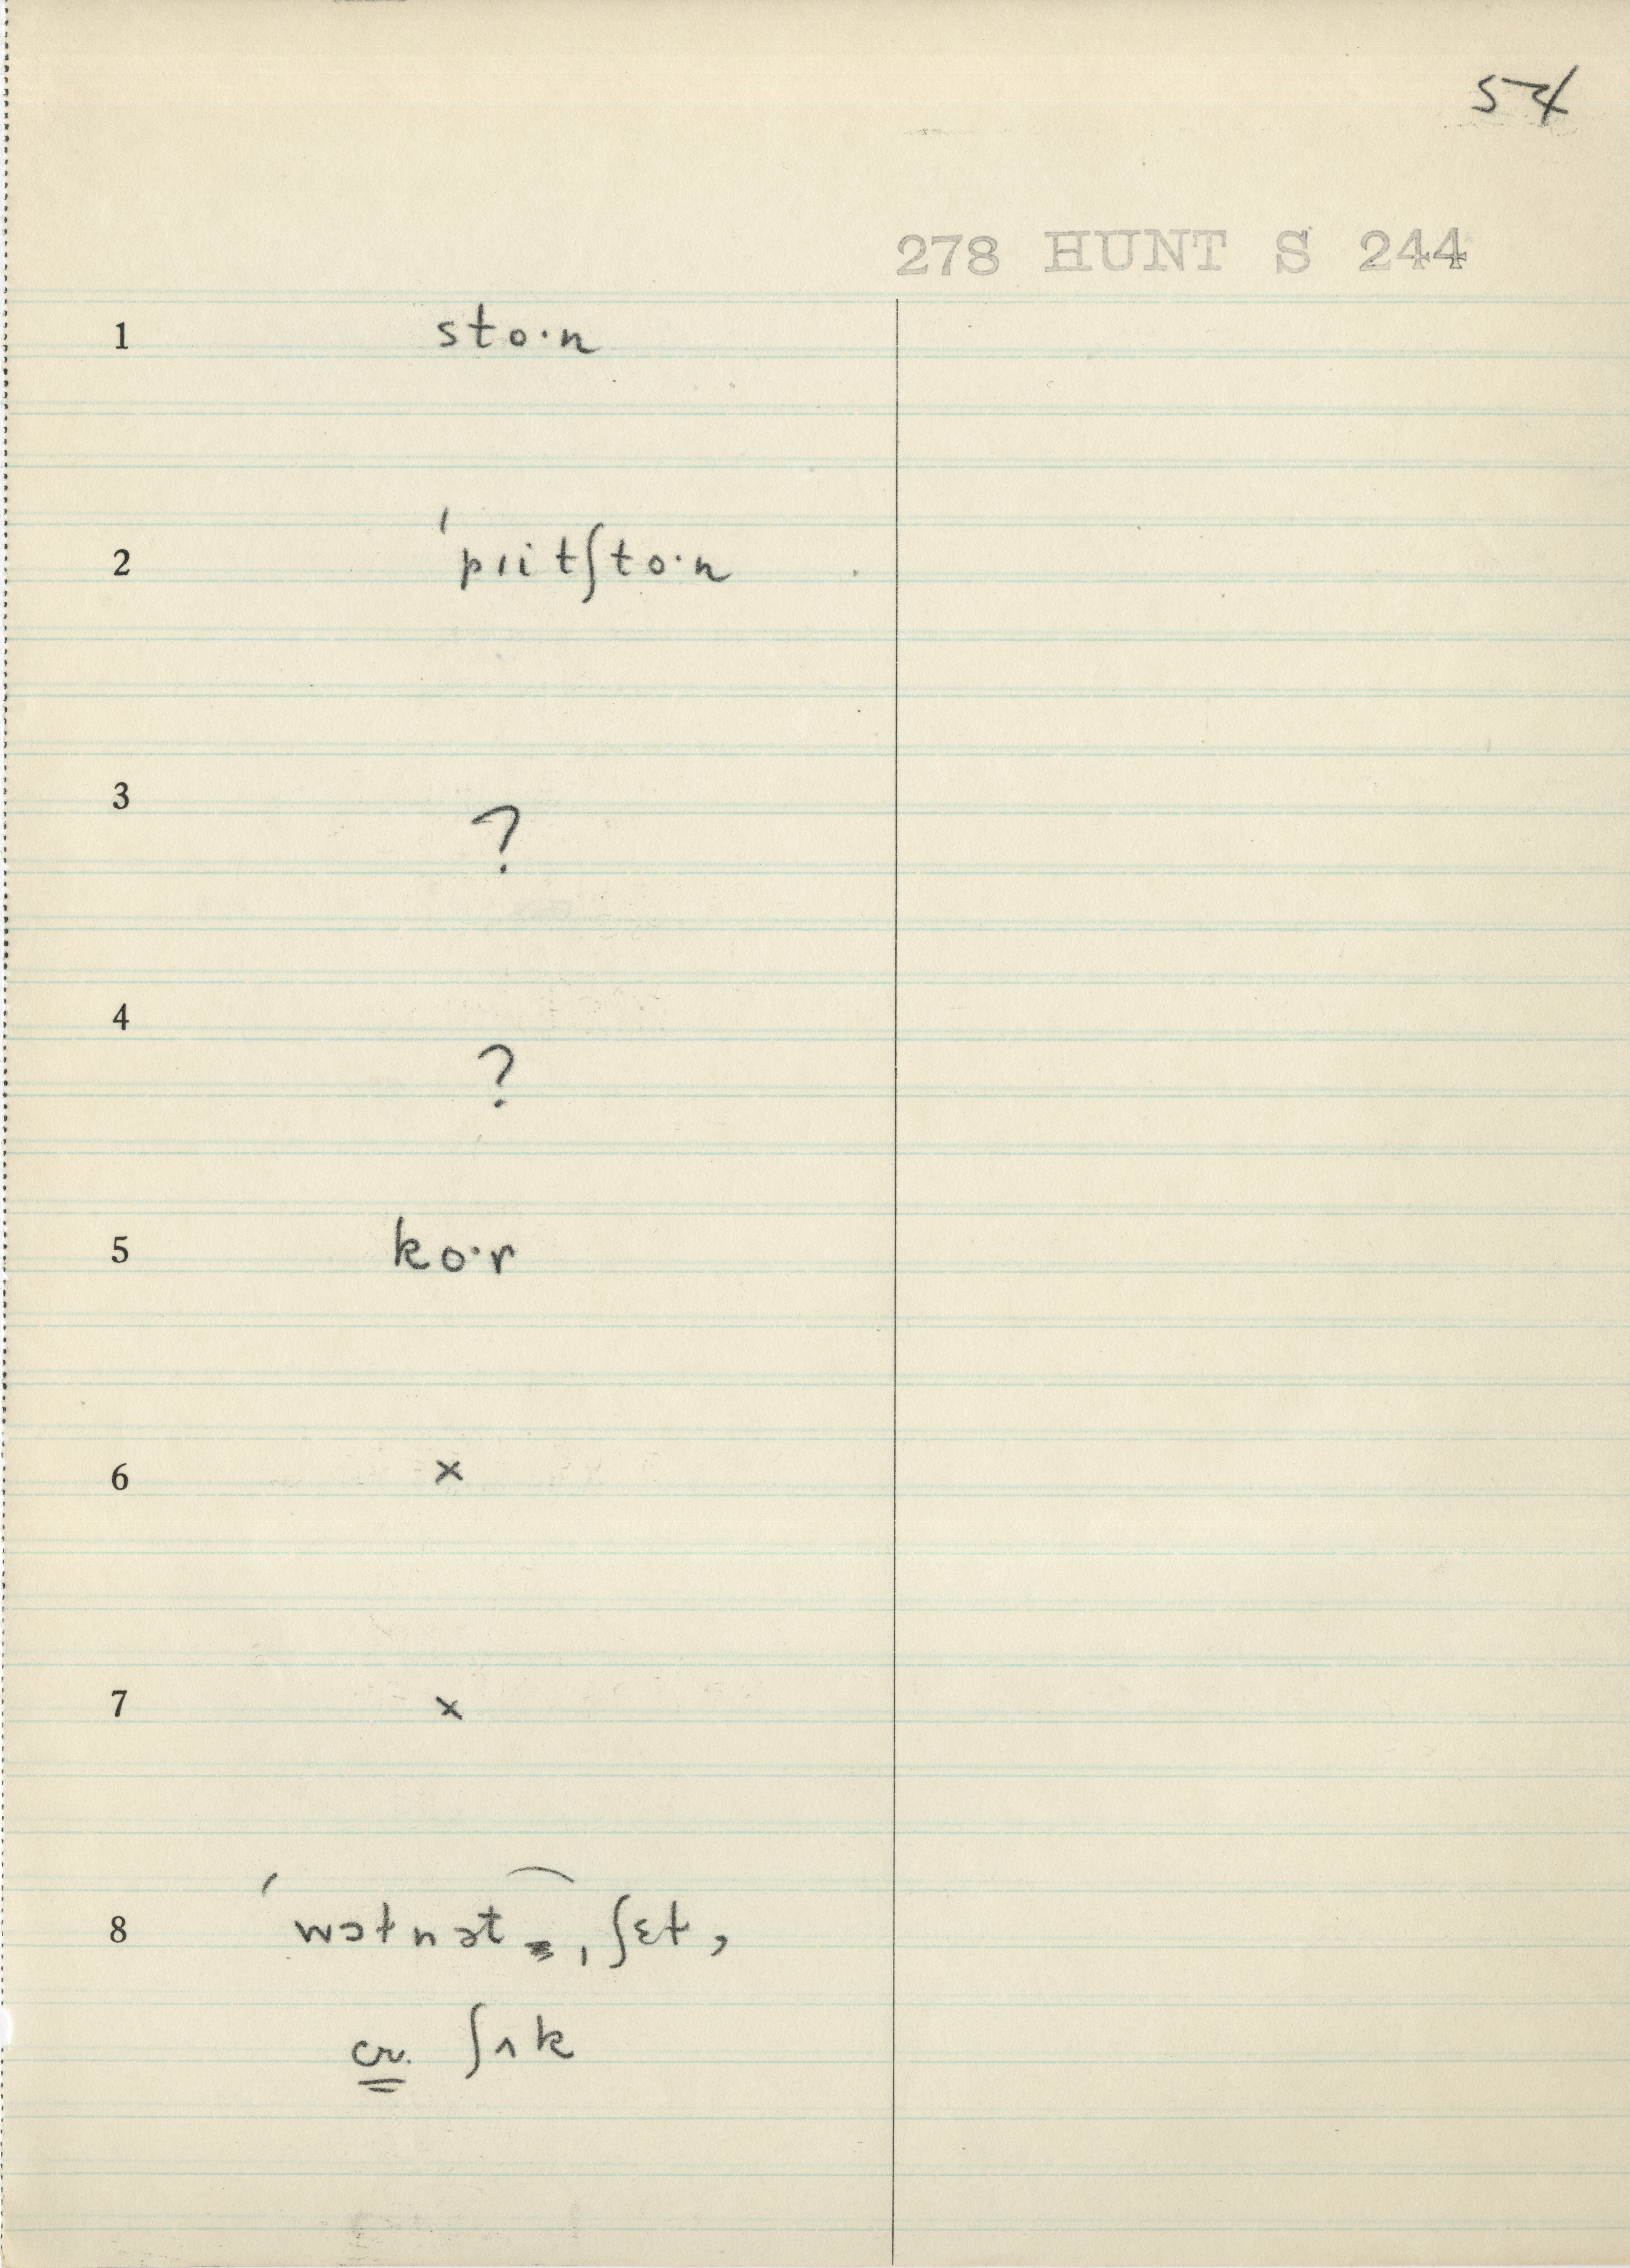 54
278 HUNT S 244
1 sto·n
2 ˈpɪitʃto·n
3 ?
4 ?
5 ko·r
6 ×
7 ×
8 ˈwɔtnət ˌʃɛt,
cr. ʃʌk